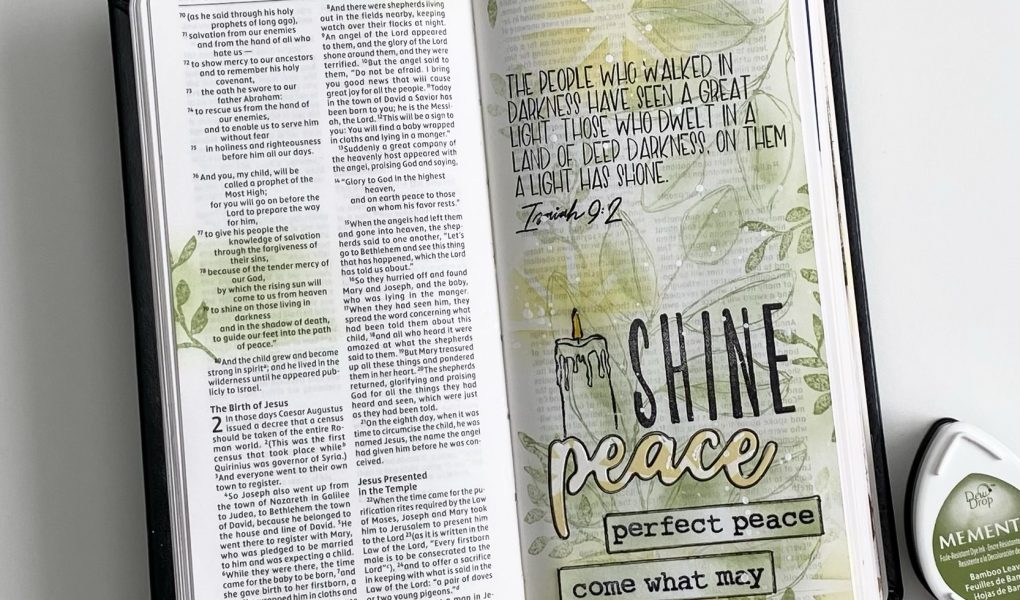 70 (as he said through his holy
prophets of long ago),
71 salvation from our enemies
and from the hand of all who
hate us —
72 to show mercy to our ancestors
and to remember his holy
covenant,
73 the oath he swore to our
father Abraham:
74 to rescue us from the hand of
our enemies,
and to enable us to serve him
without fear
75 in holiness and righteousness
before him all our days.
76 And you, my child, will be
called a prophet of the
Most High;
for you will go on before the
Lord to prepare the way
for him,
77 to give his people the
knowledge of salvation
through the forgiveness of
their sins,
78 because of the tender mercy of
our God,
by which the rising sun will
come to us from heaven
79 to shine on those living in
darkness
and in the shadow of death,
to guide our feet into the path
of peace.”
80 And the child grew and became
strong in spirit; and he lived in the
wilderness until he appeared pub-
licly to Israel.
The Birth of Jesus
2 In those days Caesar Augustus
issued a decree that a census
should be taken of the entire Ro-
man world. 2 (This was the first
census that took place while
Quirinius was governor of Syria.)
3 And everyone went to their own
town to register.
4 So Joseph also went up from
the town of Nazareth in Galilee
to Judea, to Bethlehem the town
of David, because he belonged to
the house and line of David. 5 He
went there to register with Mary,
who was pledged to be married
to him and was expecting a child.
6 While they were there, the time
came for the baby to be born, 7 and
she gave birth to her firstborn, a
wrapped him in cloths and
8 And there were shepherds living
out in the fields nearby, keeping
watch over their flocks at night.
9 An angel of the Lord appeared
to them, and the glory of the Lord
shone around them, and they were
terrified. 10 But the angel said to
them, “Do not be afraid. I bring
you good news that will cause
great joy for all the people. 11 Today
in the town of David a Savior has
been born to you; he is the Messi-
ah, the Lord. 12 This will be a sign to
you: You will find a baby wrapped
in cloths and lying in a manger.”
13 Suddenly a great company of
the heavenly host appeared with
the angel, praising God and saying,
14 “Glory to God in the highest
heaven,
and on earth peace to those
on whom his favor rests.”
15 When the angels had left them
and gone into heaven, the shep-
herds said to one another, “Let’s
go to Bethlehem and see this thing
that has happened, which the Lord
has told us about.”
16 So they hurried off and found
Mary and Joseph, and the baby,
who was lying in the manger.
17 When they had seen him, they
spread the word concerning what
had been told them about this
child, 18 and all who heard it were
amazed at what the shepherds
said to them. 19 But Mary treasured
up all these things and pondered
them in her heart. 20 The shepherds
returned, glorifying and praising
God for all the things they had
heard and seen, which were just
as they had been told.
21 On the eighth day, when it was
time to circumcise the child, he was
named Jesus, the name the angel
had given him before he was con-
ceived.
Jesus Presented
in the Temple
22 When the time came for the pu-
rification rites required by the Law
of Moses, Joseph and Mary took
him to Jerusalem to present him
to the Lord 23 (as it is written in the
Law of the Lord, “Every firstborn
male is to be consecrated to the
Lord”), 24 and to offer a sacrifice
in keeping with what is said in the
Law of the Lord: “a pair of doves
or two young pigeons.”
a man in Je-
THE PEOPLE WHO WALKED IN
DARKNESS HAVE SEEN A GREAT
LIGHT; THOSE WHO DWELT IN A
LAND OF DEEP DARKNESS, ON THEM
A LIGHT HAS SHONE.
Isaiah 9:2
SHINE
peace
perfect peace
come what may
Dew
Drop
MEMENT
Fade-Resistant Dye Ink
Bamboo Leav
Feuilles de Bam
Hojas de Bam